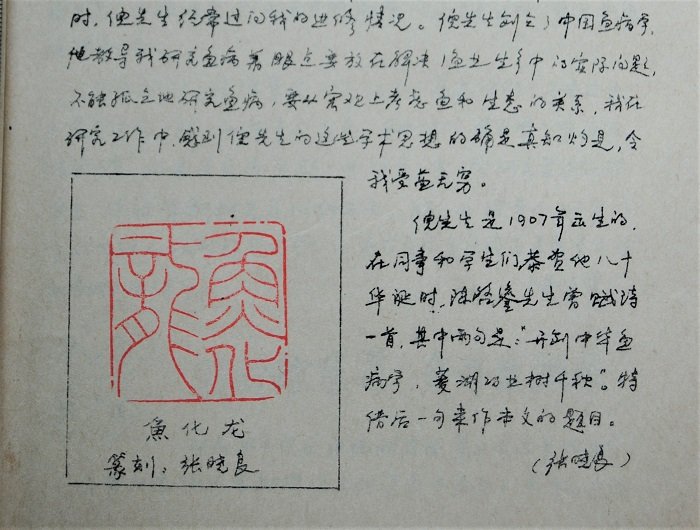 时，倪先生经常过问我的进修情况。倪先生创立了中国鱼病学，
他教导我研究鱼病着眼点要放在解决渔业生产中的实际问题，
不能孤立地研究鱼病，要从宏观上考虑鱼和生态的关系，我在
研究工作中，感到倪先生的这些学术思想的确是真知灼见，令
我受益无穷。
倪先生是1907年出生的，
在同事和学生们恭贺他八十
华诞时，陈启鎏先生曾赋诗
一首，其中两句是："开创中华鱼
病学，菱湖功业树千秋"。特
借后一句来作本文的题目。
（张晓良）
魚化龍
魚化龙
篆刻：张晓良